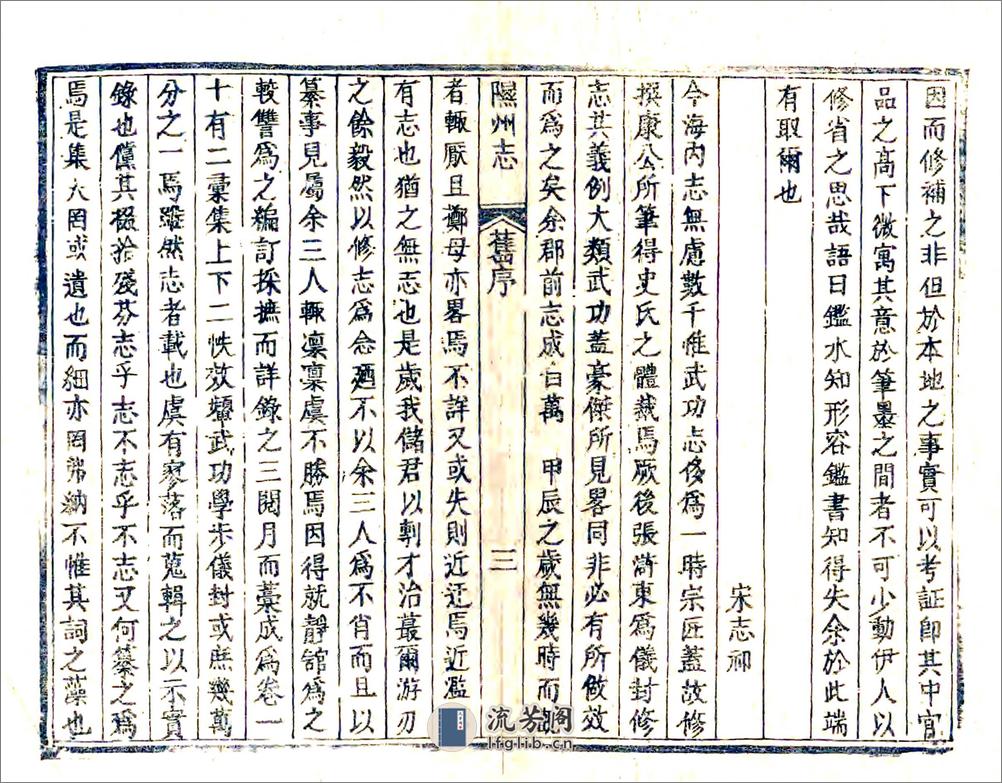 因而修補之非但於本地之事實可以考証即其中官
品之高下微寓其意於筆墨之間者不可少動伊人以
修省之思哉語曰鑑水知形容鑑書知得失余於此端
有取爾也
宋志祁
今海内志無慮數千惟武功志侈為一時宗匠蓋故修
撰康公所筆得史氏之體裁焉厥後張滸東為儀封修
志其義例大類武功蓋豪傑所見畧同非必有所倣效
而為之矣余郡前志成自萬 甲辰之歲無幾時而
隰州志 舊序 三
者輒厭且鄭母亦畧焉不詳又或失則近迂焉近濫
有志也猶之無志也是歲我儲君以剸才治蕞爾游刃
之餘毅然以修志為念廼不以余三人為不肖而且以
纂事見屬余三人輒凜凜虞不勝焉因得就靜舘為之
較讐為之編訂採摭而詳錄之三閱月而藁成為卷一
十有二彙集上下二帙效顰武功學步儀封或庶幾萬
分之一焉雖然志者載也虞有寥落而蒐輯之以示實
錄也儻其掇拾殘芬志乎志不志乎不志又何纂之為
焉是集大罔或遺也而細亦罔弗納不惟其詞之藻也
流芳阁
lfglib.cn